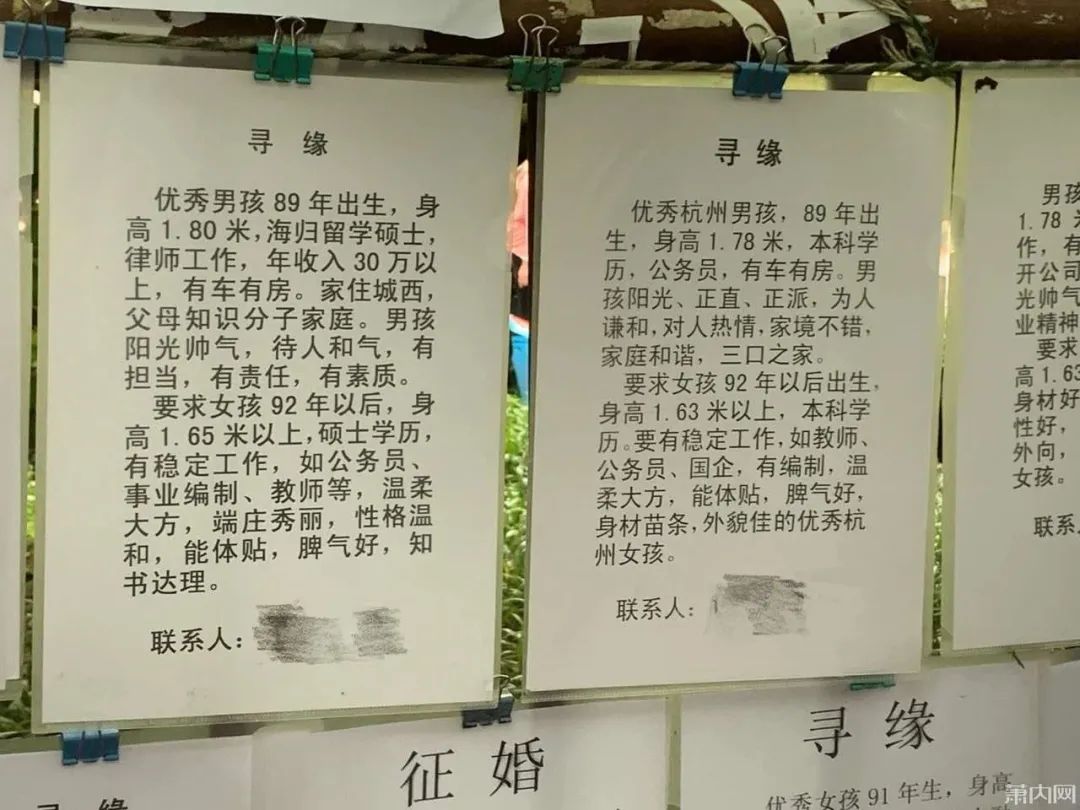 寻 缘
优秀男孩 89 年出生，身
高 1.80 米，海归留学硕士，
律师工作，年收入 30 万以
上，有车有房。家住城西，
父母知识分子家庭。男孩
阳光帅气，待人和气，有
担当，有责任，有素质。
要求女孩 92 年以后，身
高 1.65 米以上，硕士学历，
有稳定工作，如公务员、
事业编制、教师等，温柔
大方，端庄秀丽，性格温
和，能体贴，脾气好，知
书达理。
联系人：
寻 缘
优秀杭州男孩，89 年出
生，身高 1.78 米，本科学
历，公务员，有车有房。男
孩阳光、正直、正派，为人
谦和，对人热情，家境不错，
家庭和谐，三口之家。
要求女孩 92 年以后出生，
身高 1.63 米以上，本科学
历。要有稳定工作，如教师、
公务员、国企，有编制，温
柔大方，能体贴，脾气好，
身材苗条，外貌佳的优秀杭
州女孩。
联系人：
男孩
1.78
作，有
开公司
光帅气
业精神
要求
高 1.63
身材好
性好，
外向，
女孩。
联系人
寻 缘
征 婚
寻 缘
优秀女孩 91 年生，身高
萧内网